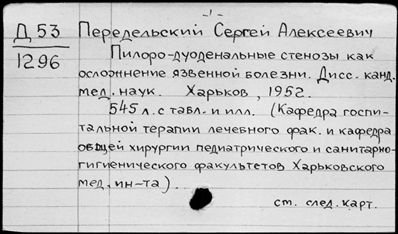 -1-
Д 53 Передельский Сергей Алексеевич
1296 Пилоро-дуоденальные стенозы как
осложнение язвенной болезни. Дисс. канд.
мед. наук. Харьков, 1952.
545 л. с табл. и илл. (Кафедра госпи-
тальной терапии лечебного фак. и кафедра
общей хирургии педиатрического и санитарно-
гигиенического факультетов Харьковского
мед. ин-та).
ст. след. карт.